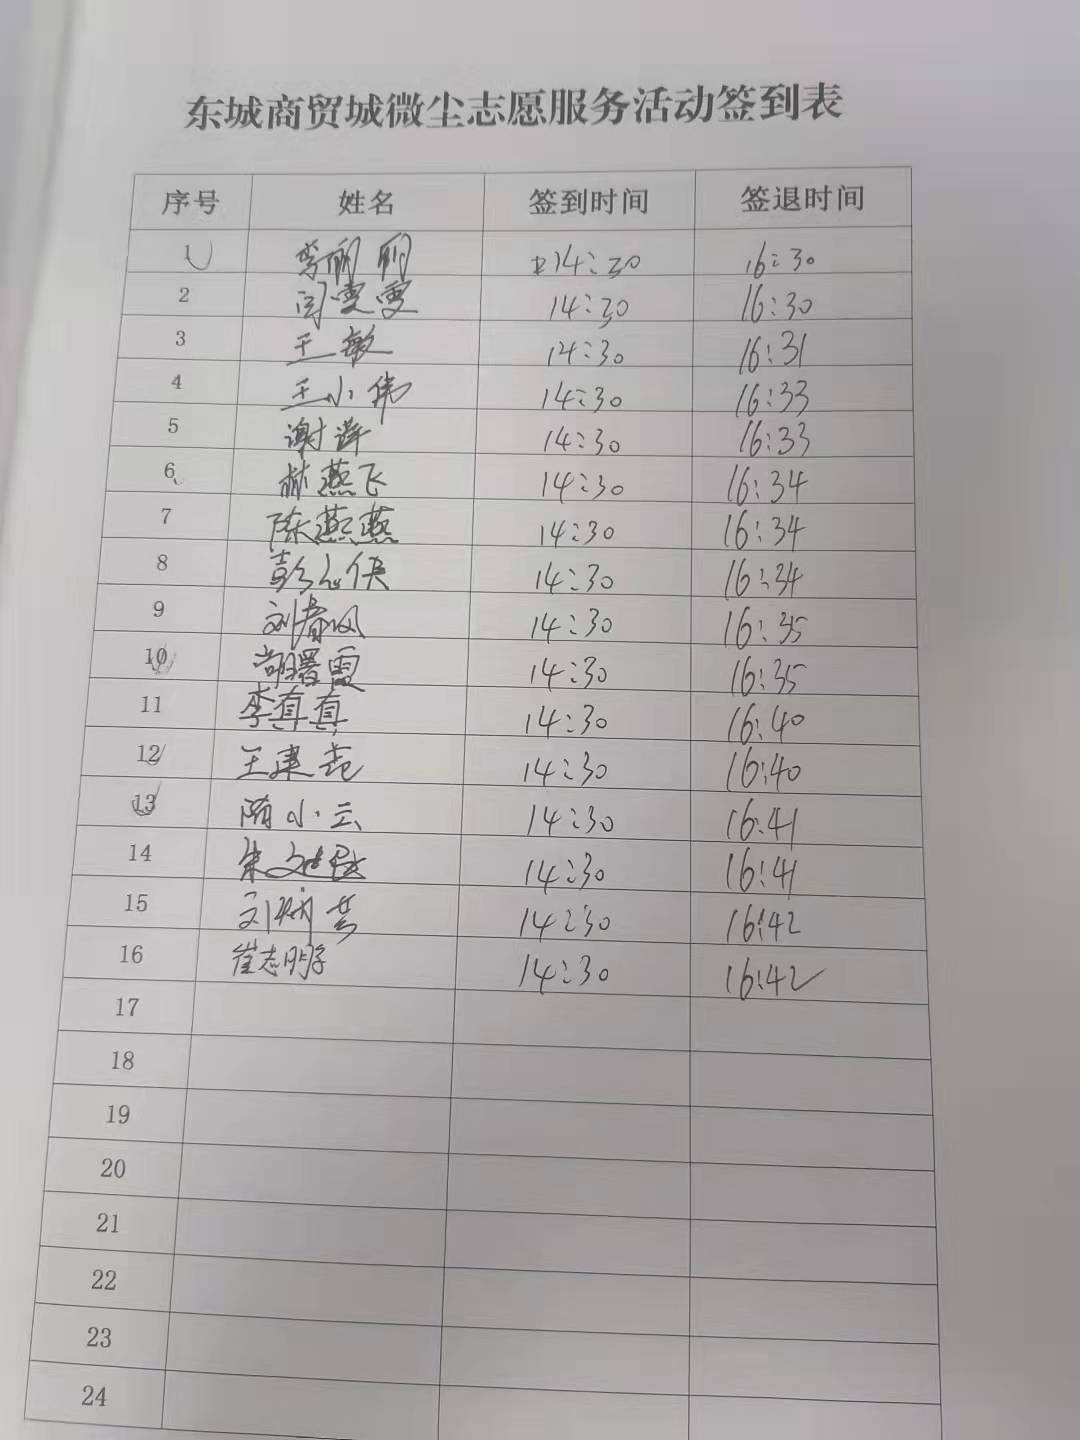 东城商贸城微尘志愿服务活动签到表
序号 姓名 签到时间 签退时间
1 李丽丽 14:30 16:30
2 闫雯雯 14:30 16:30
3 王敏 14:30 16:31
4 王小伟 14:30 16:33
5 谢萍 14:30 16:33
6 林燕飞 14:30 16:34
7 陈燕燕 14:30 16:34
8 彭 14:30 16:34
9 刘春风 14:30 16:35
10 胡曙霞 14:30 16:35
11 李真真 14:30 16:40
12 王建 14:30 16:40
13 隋小云 14:30 16:41
14 朱文 14:30 16:41
15 刘炳芳 14:30 16:42
16 崔志明 14:30 16:42
17
18
19
20
21
22
23
24